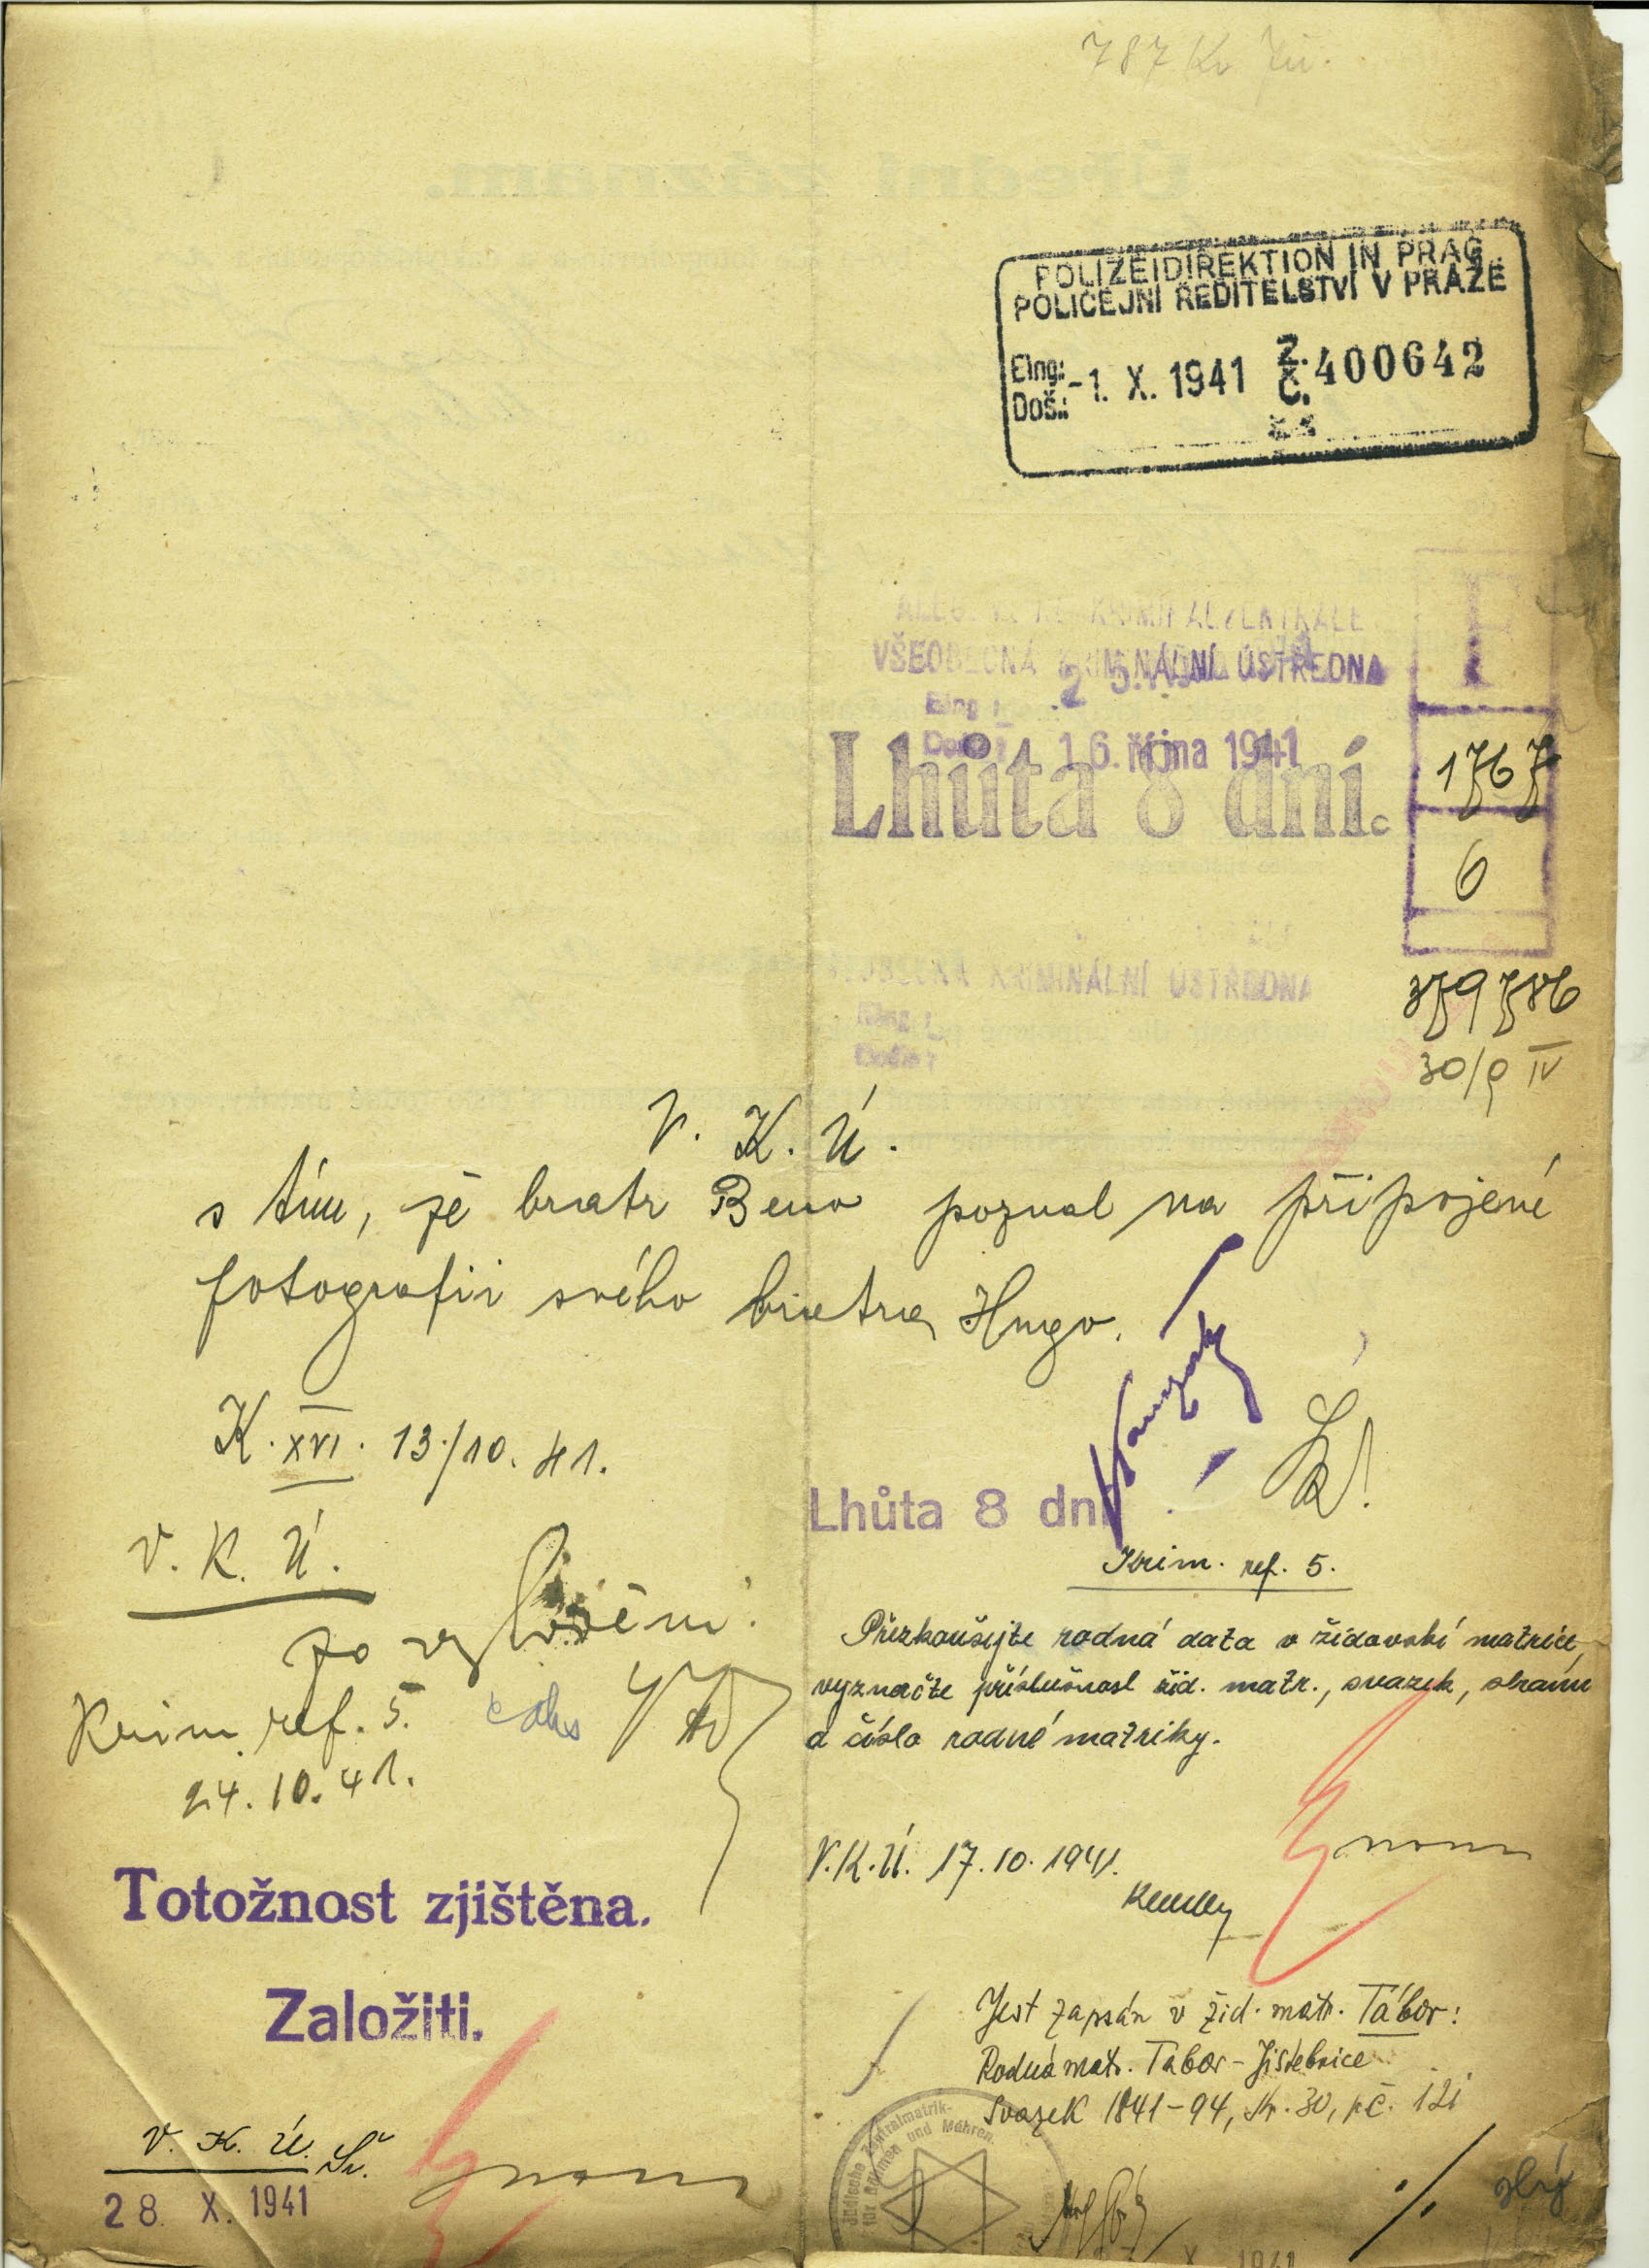 787
POLIZEIDIREKTION IN PRAG
POLICEJNÍ ŘEDITELSTVÍ V PRAZE
Eing: Z.
Doš.: -1. X. 1941 Č. 400642
KRIMINALZENTRALE
VŠEOBECNÁ KRIMINÁLNÍ ÚSTŘEDNA
Eing.:
Došlo: 16. října 1941
Lhůta 8 dní.
1767
6
VŠEOBECNÁ KRIMINÁLNÍ ÚSTŘEDNA
Eing.:
Došlo:
30/9 IV
V. K. Ú.
s tím, že bratr Beno poznal na připojené
fotografii svého bratra Hugo.
K. XVI. 13./10. 41.
Lhůta 8 dní
V. K. Ú.
Krim. ref. 5.
po vyřízení
Přezkoušejte rodná data v židovské matrice,
vyznačte příslušnost žid. matr., svazek, stranu
a číslo rodné matriky.
Krim. ref. 5.
24. 10. 41.
V.K.Ú. 17. 10. 1941.
Totožnost zjištěna.
Založiti.
Jest zapsán v žid. matr. Tábor:
Rodná matr. Tábor - Jistebnice
Svazek 1841-94, str. 30, pč. 121
V. K. Ú.
28. X. 1941
Jüdische Zentralmatrik-
für Böhmen und Mähren.
X. 1941